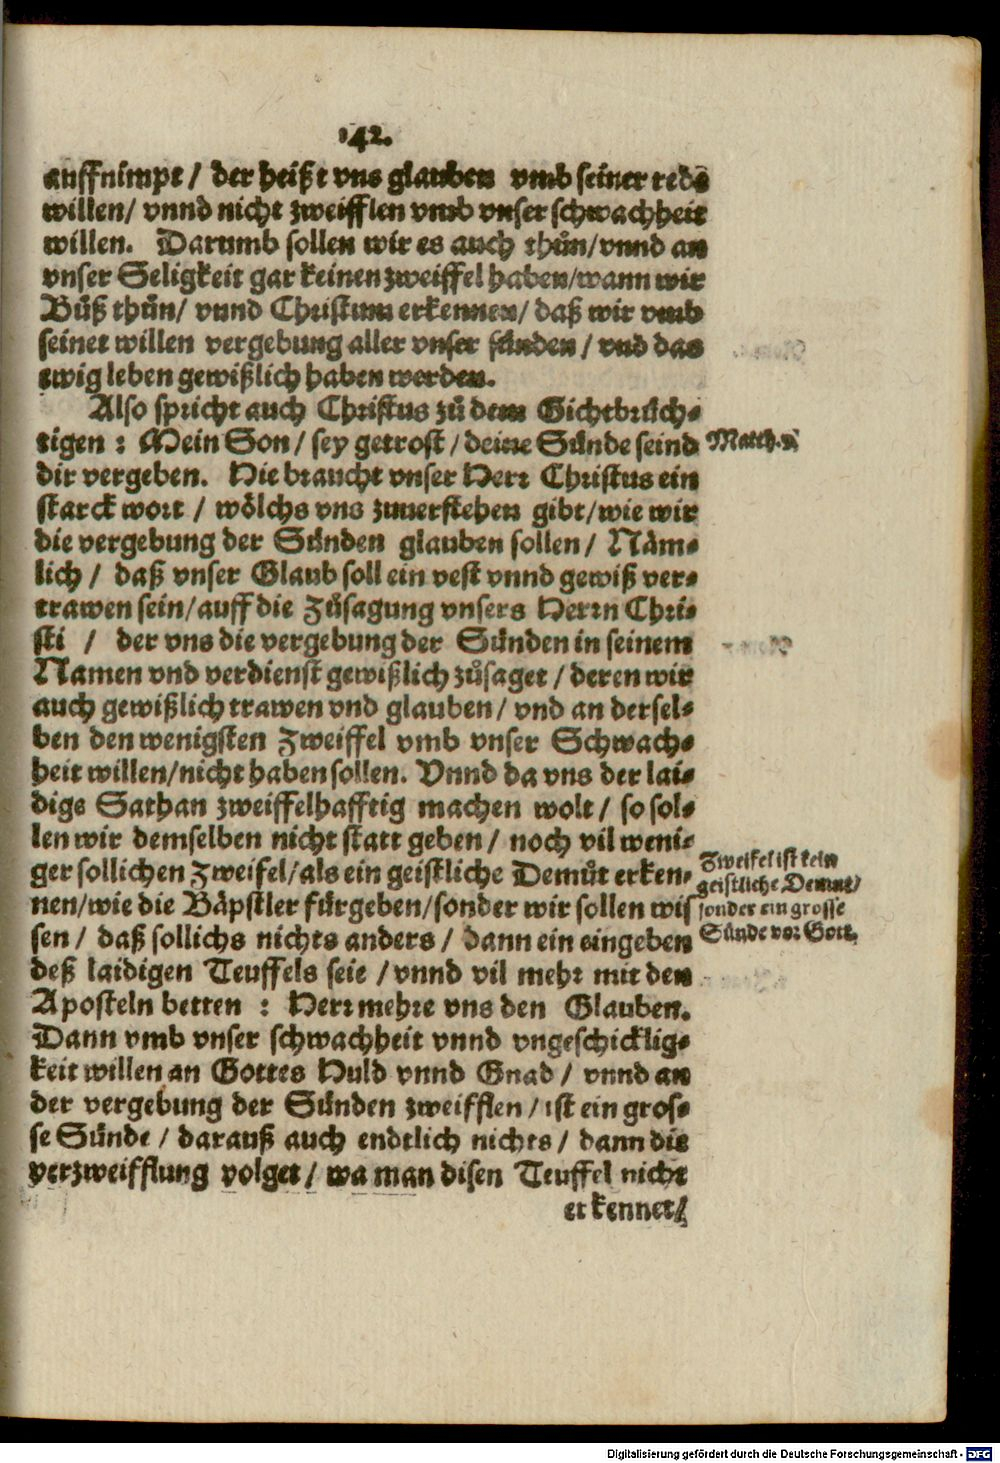 142.
auffnimpt / der heißt vns glauben vmb seiner rede
willen / vnnd nicht zweifflen vmb vnser schwachheit
willen. Darumb sollen wir es auch thůn / vnnd an
vnser Seligkeit gar keinen zweiffel haben / wann wir
Bůß thůn / vnnd Christum erkennen / daß wir vmb
seinet willen vergebung aller vnser sünden / vnd das
ewig leben gewißlich haben werden.
Also spricht auch Christus zů dem Gichtbrüch⸗
tigen : Mein Son / sey getrost / deine Sünde seind
Matth. 9
dir vergeben. Hie braucht vnser Herr Christus ein
starck wort / wölchs vns zuuerstehen gibt / wie wir
die vergebung der Sünden glauben sollen / Näm⸗
lich / daß vnser Glaub soll ein vest vnnd gewiß ver⸗
trawen sein / auff die Zůsagung vnsers Herrn Chri⸗
sti / der vns die vergebung der Sünden in seinem
Namen vnd verdienst gewißlich zůsaget / deren wir
auch gewißlich trawen vnd glauben / vnd an dersel⸗
ben den wenigsten Zweiffel vmb vnser Schwach⸗
heit willen / nicht haben sollen. Vnnd da vns der lai⸗
dige Sathan zweiffelhafftig machen wolt / so sol⸗
len wir demselben nicht statt geben / noch vil weni⸗
ger sollichen Zweifel / als ein geistliche Demůt erken⸗
nen / wie die Bäpstler fürgeben / sonder wir sollen wis
sen / daß sollichs nichts anders / dann ein eingeben
Zweifel ist kein
geistliche Demut /
sonder ein grosse
Sünde vor Gott.
deß laidigen Teuffels seie / vnnd vil mehr mit den
Aposteln betten : Herr mehre vns den Glauben.
Dann vmb vnser schwachheit vnnd vngeschicklig⸗
keit willen an Gottes Huld vnnd Gnad / vnnd an
der vergebung der Sünden zweifflen / ist ein gros⸗
se Sünde / darauß auch endtlich nichts / dann die
verzweifflung volget / wa man disen Teuffel nicht
erkennet /
Digitalisierung gefördert durch die Deutsche Forschungsgemeinschaft - DFG